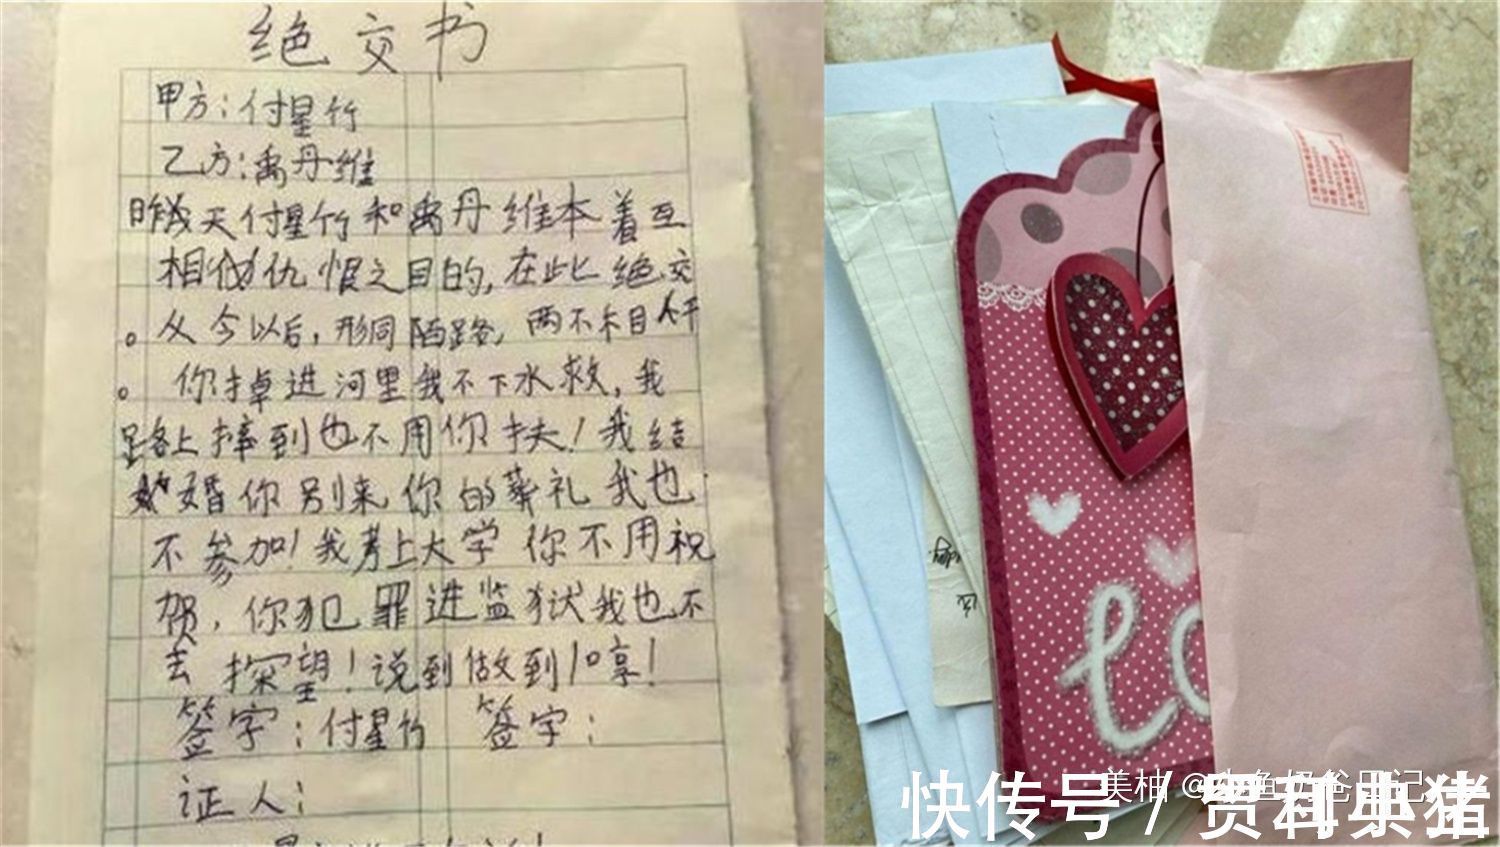 绝交书
甲方：付星竹
乙方：禹丹维
昨天付星竹和禹丹维本着互
相仇恨之目的，在此绝交
。从今以后，形同陌路，两不相干
。你掉进河里我不下水救，我
路上摔到也不用你扶！我结
婚你别来你的葬礼我也
不参加！我考上大学你不用祝
贺，你犯罪进监狱我也不
去探望！说到做到
签字：付星竹 签字：
证人：
lo
美柚@
快传号/贾